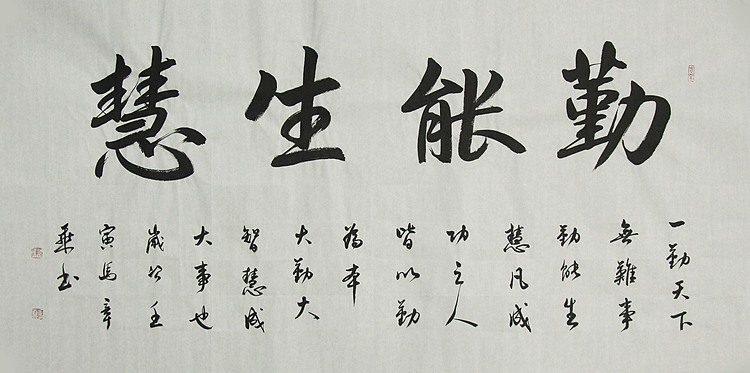 勤能生慧
一勤天下
無難事
勤能生
慧凡成
功之人
皆以勤
為本
大勤大
智慧成
大事也
歲壬
寅馬章
乘书